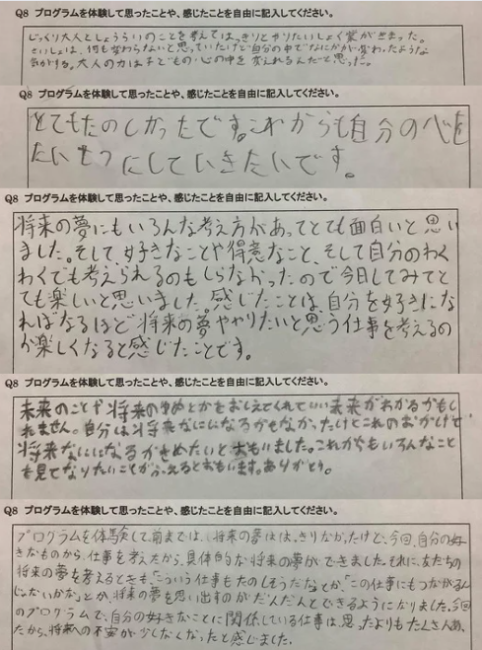 Q8 プログラムを体験して思ったことや、感じたことを自由に記入してください。
じっくり大人としょうらいのことを考えてはっきりとやりたいしょく業がきまった。
さいしょは、何も変わらないと思っていたけど自分の中でなにかが変わったような
気がする。大人の力は子どもの心の中を変えれるんだと思った。
Q8 プログラムを体験して思ったことや、感じたことを自由に記入してください。
とてもたのしかったです。これからも自分の心を
たいせつにしていきたいです。
Q8 プログラムを体験して思ったことや、感じたことを自由に記入してください。
将来の夢にもいろんな考え方があってとても面白いと思い
ました。そして、好きなことや得意なこと、そして自分のわく
わくでも考えられるのもしらなかったので今日してみてと
ても楽しいと思いました。感じたことは、自分を好きにな
ればなるほど将来の夢ややりたいと思う仕事を考えるの
が楽しくなると感じたことです。
Q8 プログラムを体験して思ったことや、感じたことを自由に記入してください。
未来のことや将来のゆめとかをおしえてくれていい未来がわかるかもし
れません。自分は将来なにになるかもなかったけどこれのおかげで
将来なにになるかきめたいとおもいました。これからもいろんなこと
を見てなりたいことがふえるとおもいます。ありがとう。
Q8 プログラムを体験して思ったことや、感じたことを自由に記入してください。
プログラムを体験して、前までは、将来の夢ははっきりなかったけど、今回、自分の好
きなものから、仕事を考えたから、具体的な将来の夢ができました。それに、友だちの
将来の夢を考えるときも、「こういう仕事もたのしそうだな」とか、「この仕事にもつながるん
じゃないかな」とか、将来の夢を思い出すのがだんだんとできるようになりました。今回
のプログラムで、自分の好きなことに関係している仕事は、思ったよりもたくさんあっ
たから、将来への不安が少しなくなったと感じました。